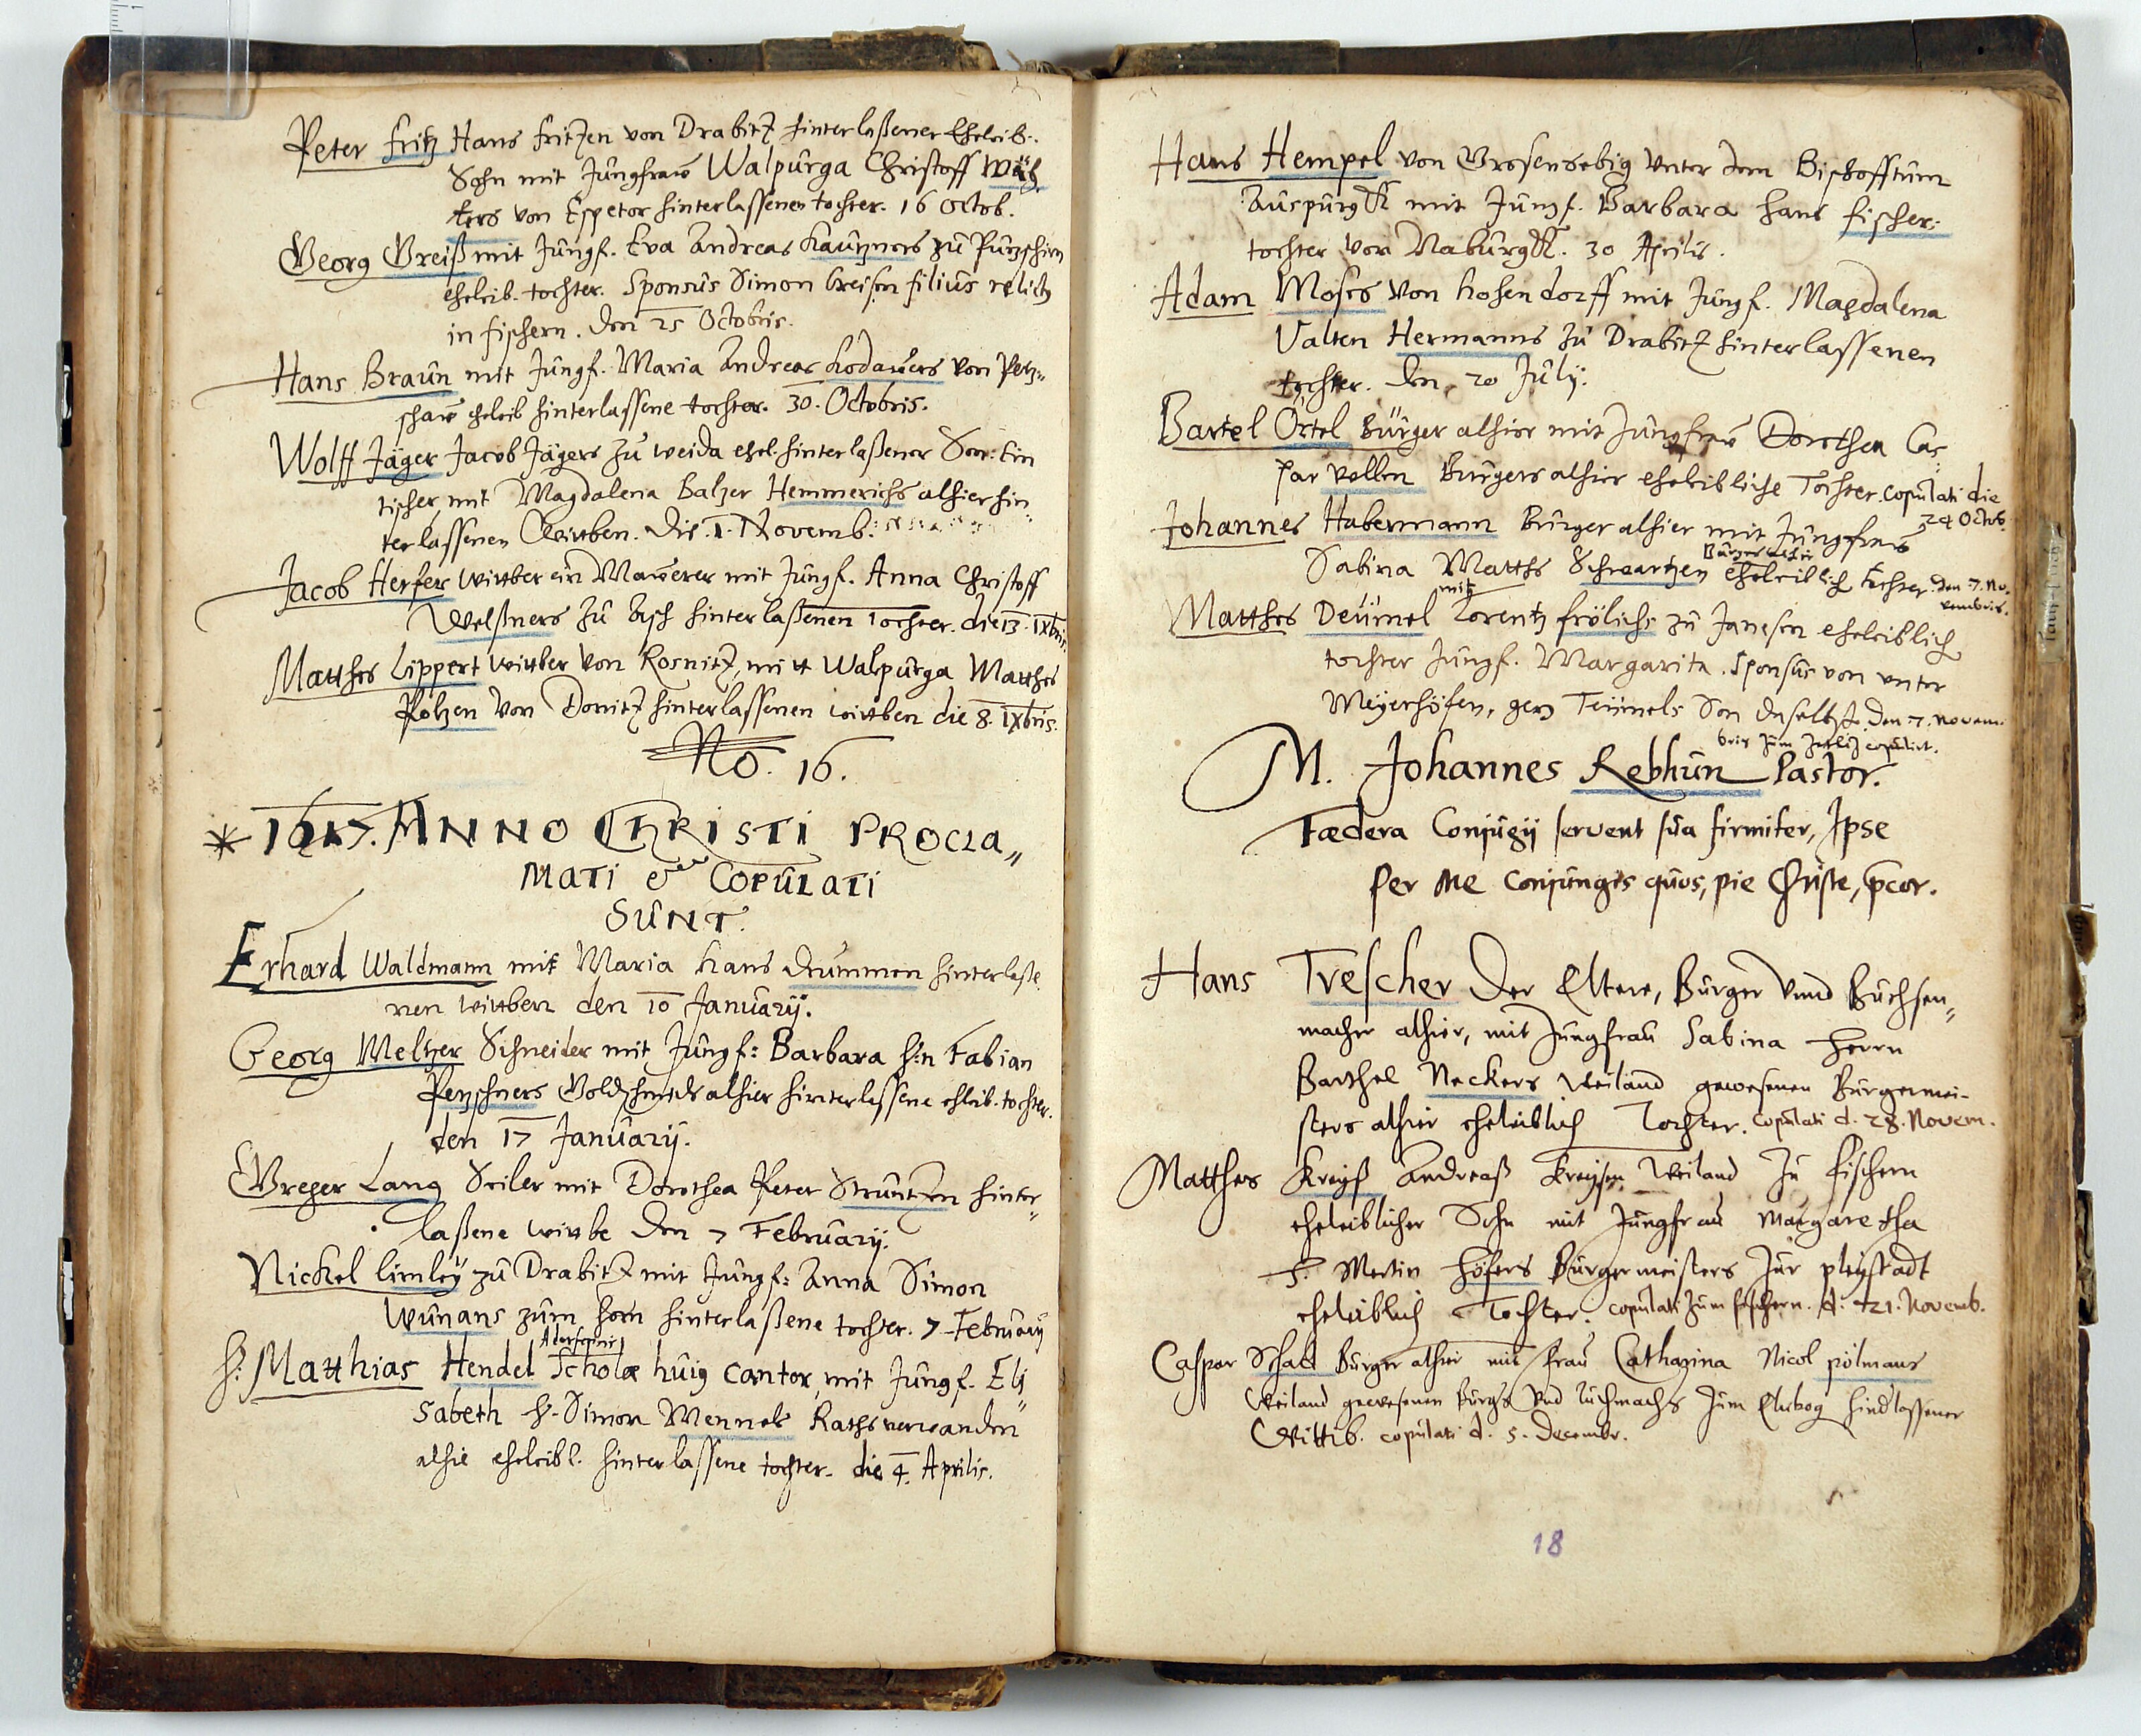 Peter Fritz Hans Fritzen von Drabitz hinterlaßener Eheleib:
Sohn mit Jungfraw Walpurga Christoff Wäch
ters von Espetor hinterlassenen tochter. 16 Octob.
Georg Greiß mit Jungf. Eva Andreas Kautzners zu Putzschirn
eheleib. tochter. Sponsus Simon Greisen filius relict9
in Fischern. Den 25 Octobris.
Hans Braun mit Jungf. Maria Andreas Kodawers von Petz=
schaw eheleib hinterlassene tochter. 30. Octobris.
Wolff Jäger Jacob Jägers zu weida ehel. hinterlaßener Son: Ein
tischer, mit Magdalena Balzer Hemmerichs alhier hin=
terlassenen Wittben. Die. 1. Novemb:
Jacob Herfer wittber ein Mawrer mit Jungf. Anna Christoff
Welßners zu Aich hinterlaßenen Tochter. die 13. IXbris.
Matthes Lippert wittber von Rosnitz, mitt Walpurga Matthes
Poltzen von Donitz hinterlassenen wittben die 8. IXbris.
No. 16.
* 1617. ANNO CHRISTI PROCLA=
MATI & COPULATI
SUNT.
Erhard Waldmann mit Maria Hans Drummen hinterlaße
nen wittben den 10 January.
Georg Meltzer Schneider mit Jungf: Barbara H:n Fabian
Petzschners Goldschmids alhier hinterlassene ehleib. tochter.
den 17 January.
Greger Lang Seiler mit Dorothea Peter Struntzen hinter=
laßene wittbe den 7 February.
Nickel Limley zu Drabitz mit Jungf: Anna Simon
Wunans zum Horn hinterlaßene tochter. 7 February
H: Matthias Hendel Scholæ huig cantor, mit Jungf. Eli=
sabeth H. Simon Mennels Rathsverwanden
alhie eheleibl. hinterlassene tochter. die 4. Aprilis.
Hans Hempel von Grosensebig unter dem Bischofftum
Auspurgk mit Jungf. Barbara Hans Fischer:
tochter von Naburgk. 30 Aprilis.
Adam Moses von Hosendorff mit Jungf. Magdalena
Valten Hermanns zu Drabitz hinterlassenen
tochter. den 20 July.
Bartel Örtel Bürger alhier mit Jungfraw Dorothea Cas
par Vollen Burgers alhier eheleibliche Tochter. copulati die
24 Octob.
Johannes Habermann Bürger alhier mit Jungfraw
Bürgers alhie
Sabina Matths Schwartzen eheleiblich tochter. den 7. No-
vembris.
mitt
Matthes Deumel Lorentz Frölichs zu Janesen eheleiblich
tochter Jungf. Margarita. Sponsus von unter
Meyerhöfen, Georg Teumels Son daselbst. den 7. novem
bris zum copulirt.
M. Johannes Rebhun Pastor.
Fædera Conjugij servent sua firmiter, Ipse
Per me conjungis quos, pie Christe, p̄cor.
Hans Trescher der Eltere, Bürger unnd Büchsen=
macher alhier, mit Jungfrau Sabina Herrn
Barthel Neckers weiland gewesenen Bürgermei-
sters alhier eheleiblich Tochter. copulati d. 28. Novem.
Matthes Kreyß Andreaß Kreysen weiland zu Fischern
eheleiblicher Sohn mit Jungfrau Margaretha
H. Mertin Höfers Bürgermeisters zur pleystadt
eheleiblich Tochter. copulati zum Fischern. d. 21. Novemb.
Caspar Schad Bürger alhier mit Frau Catharina Nicol pölmans
weiland gewesenen Burgrs und tuchmachrs zum Elnbog hindlassener
Wittib. copulati d. 5. Decembr.
18